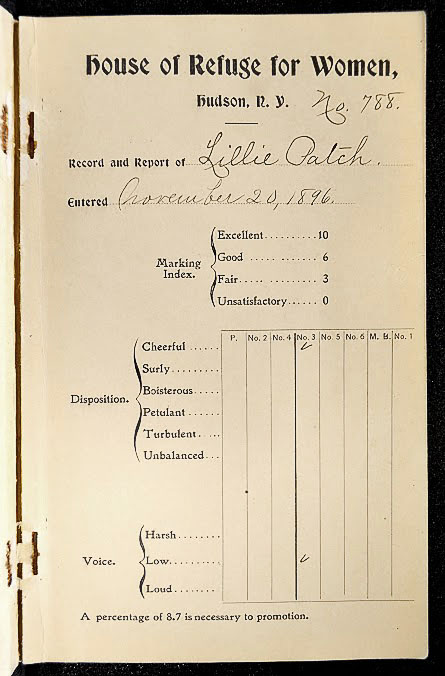 House of Refuge for Women,
Hudson, N. Y. No. 788.
Record and Report of Lillie Patch.
Entered November 20, 1896.
Marking Index.
Excellent..........10
Good .............. 6
Fair................ 3
Unsatisfactory...... 0
P. No. 2 No. 4 No. 3 No. 5 No. 6 M. B. No. 1
Disposition.
Cheerful ...... ✓
Surly..........
Boisterous.....
Petulant ......
Turbulent .....
Unbalanced...
Voice.
Harsh ........
Low.......... ✓
Loud.........
A percentage of 8.7 is necessary to promotion.